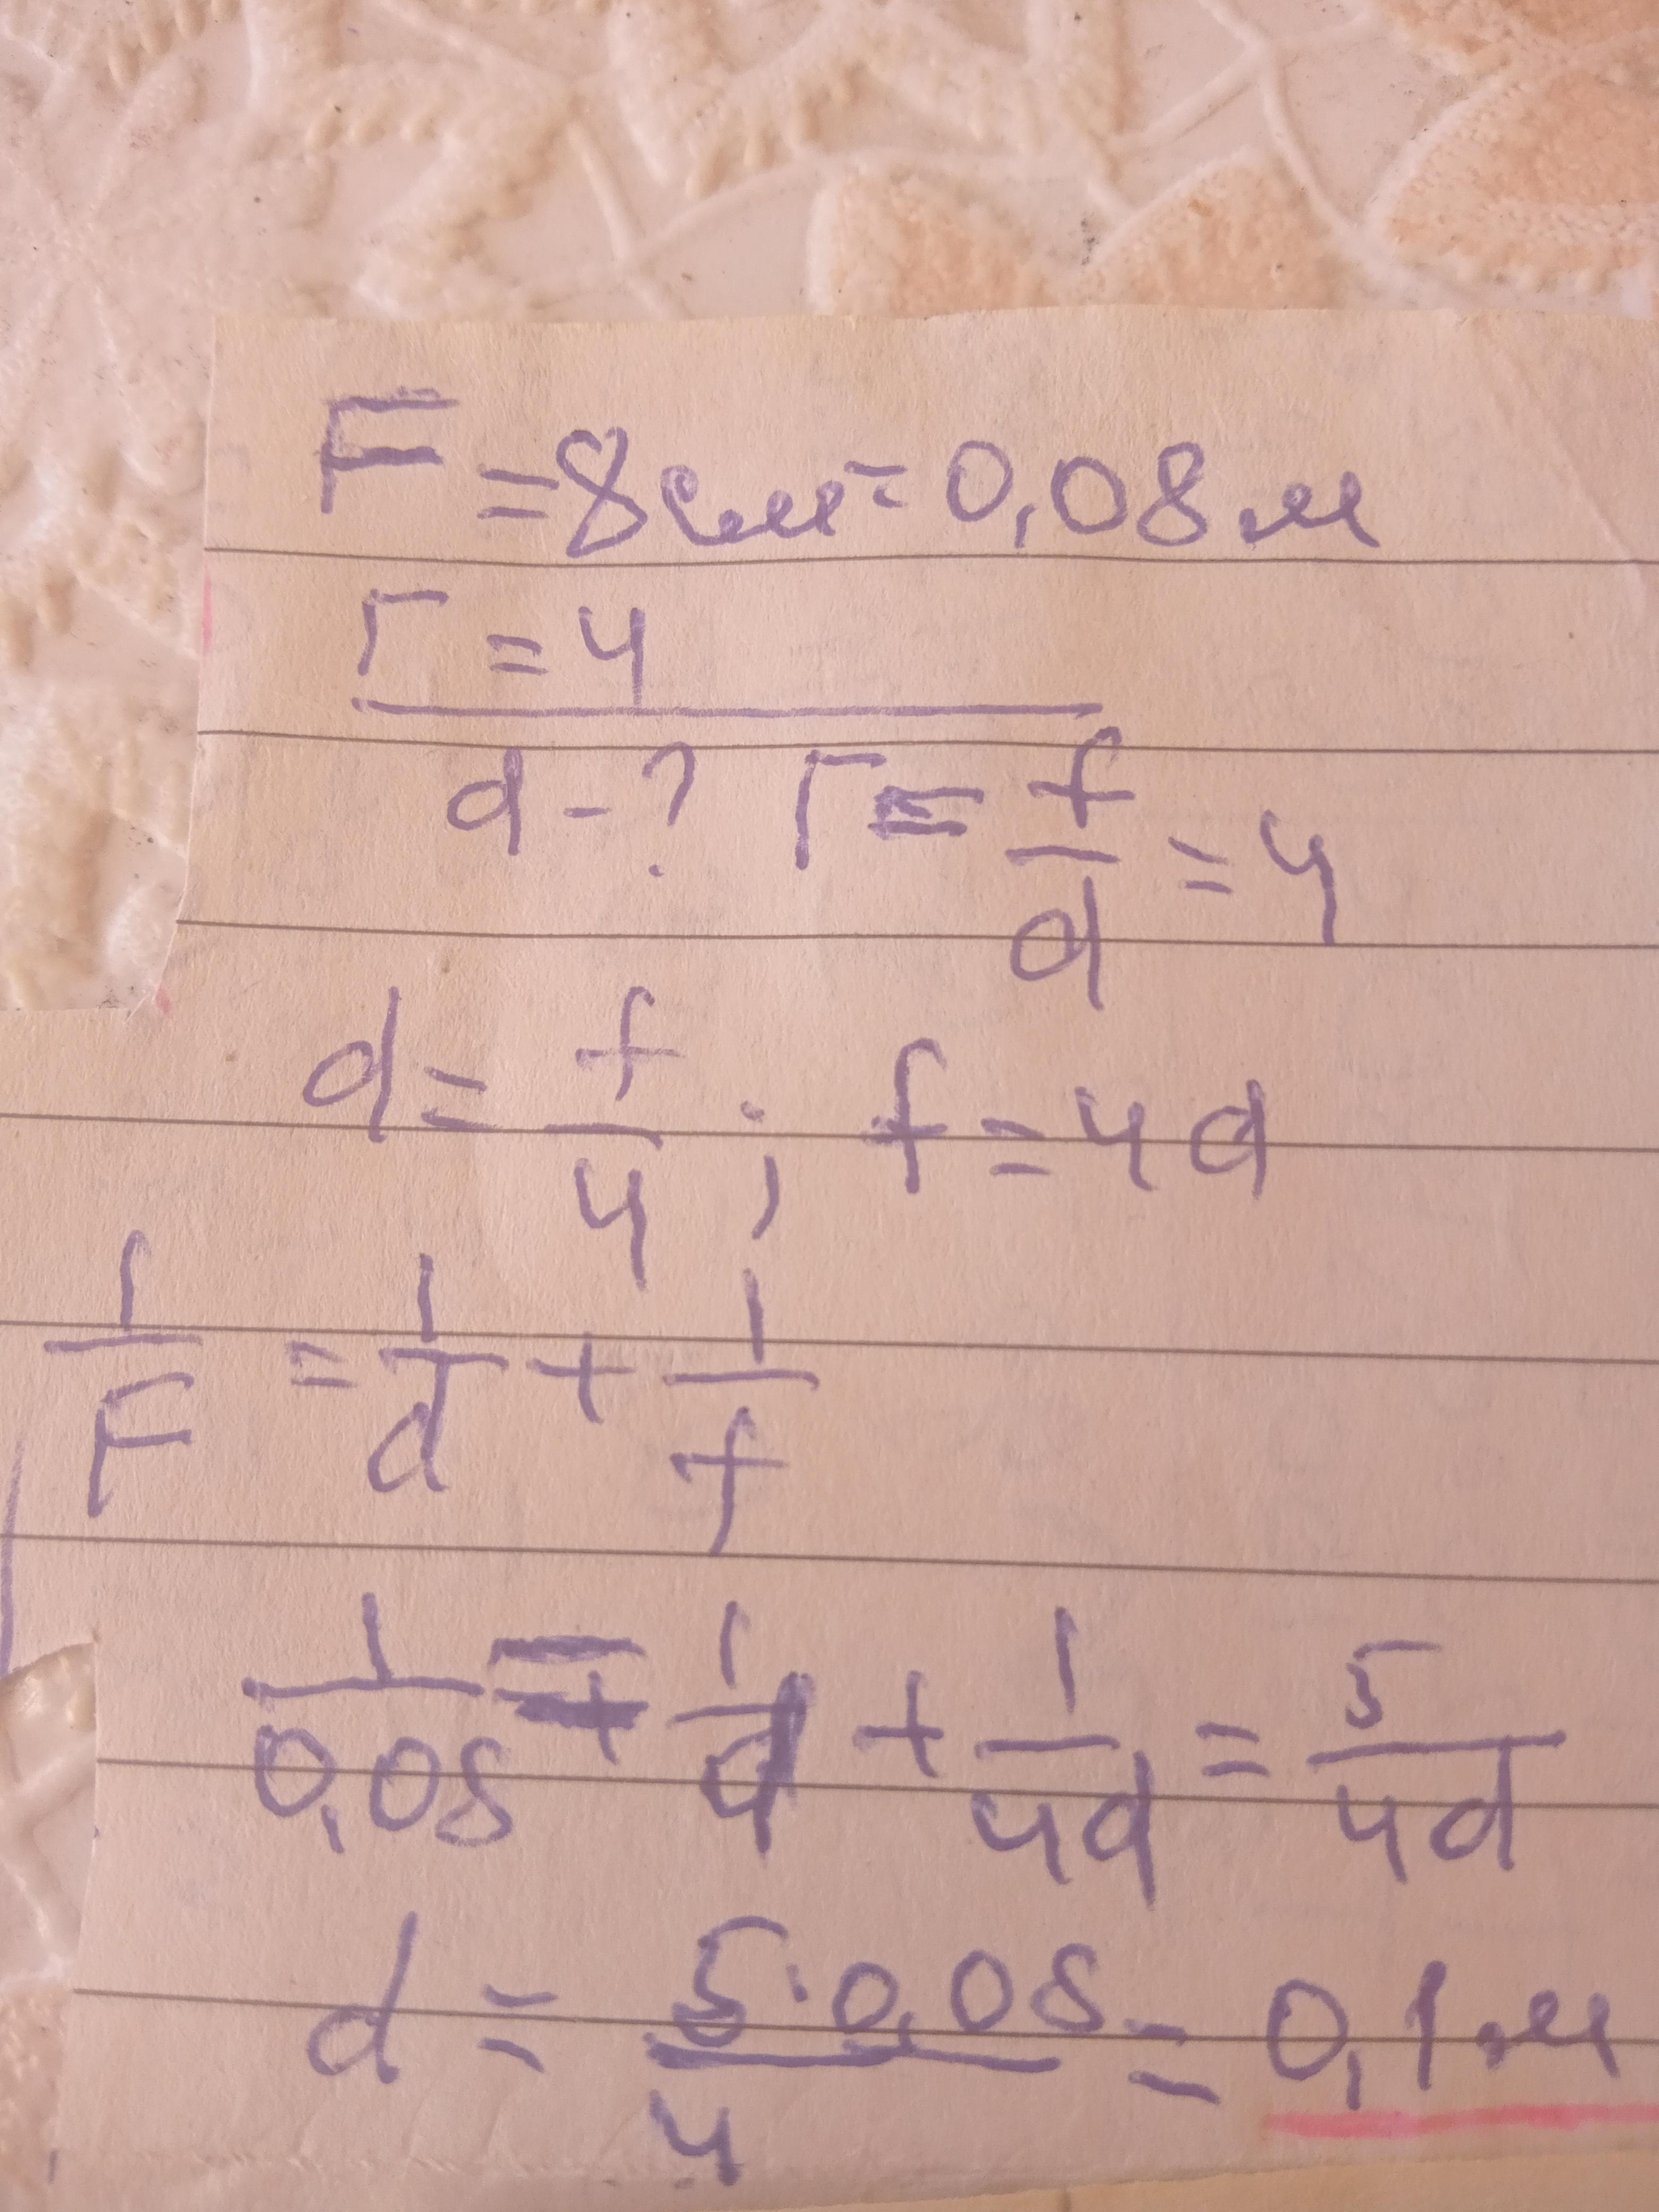 F = 8см = 0,08 м
Г = 4
d - ? Г = f/d = 4
d = f/4 ; f = 4d
1/F = 1/d + 1/f
1/0,08 = 1/d + 1/4d = 5/4d
d = 5·0,08/4 = 0,1 м